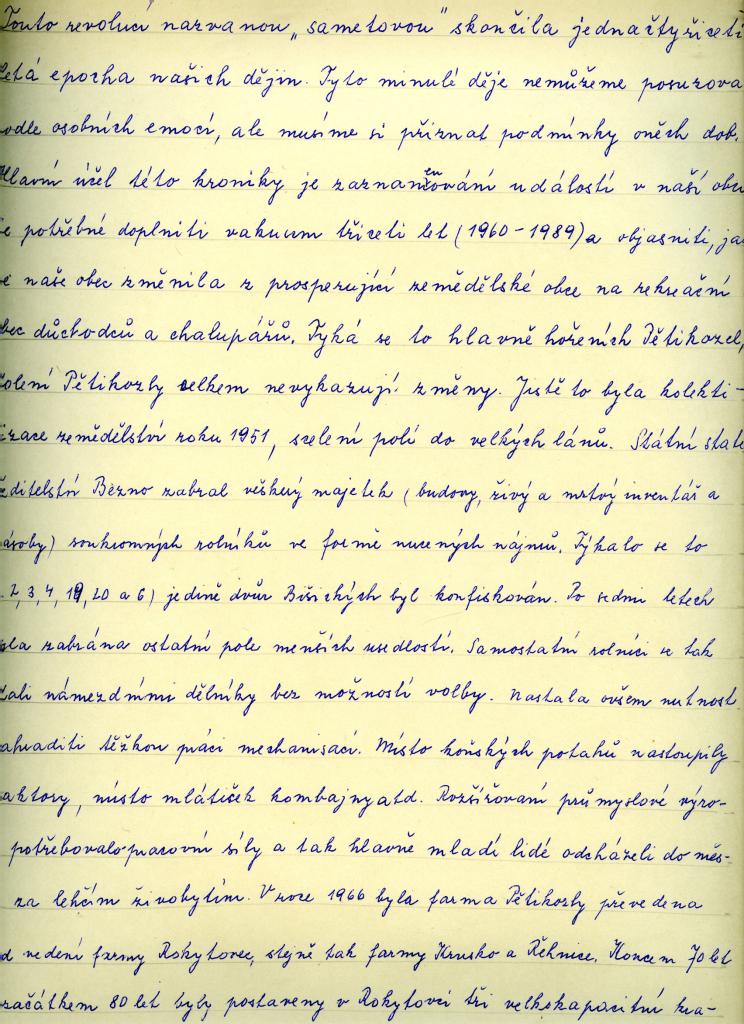 Touto revolucí nazvanou „sametovou" skončila jednačtyřiceti
letá epocha našich dějin. Tyto minulé děje nemůžeme posuzova
odle osobních emocí, ale musíme si přiznat podmínky oněch dob.
Hlavní účel této kroniky je zaznamenování událostí v naší obci
e potřebné doplniti vakuum třiceti let (1960-1989) a objasniti, jak
e naše obec změnila z prosperující zemědělské obce na rekreační
obec důchodců a chalupářů. Tyká se to hlavně hořeních Pětikozel,
olení Pětikozly celkem nevykazují změny. Jistě to byla kolekti-
izace zemědělství roku 1951, scelení polí do velkých lánů. Státní state
editelství Bezno zabral veškerý majetek (budovy, živý a mrtvý inventář a
ásoby) soukromných rolníků ve formě nucených nájmů. Týkalo se to
2, 3, 4, 19, 20 a 6) jedině dvůr Bišických byl konfiskován. Po sedmi letech
yla zabrána ostatní pole menších usedlostí. Samostatní rolníci se tak
tali námezdními dělníky bez možností volby. Nastala ovšem nutnost
ahraditi těžkou práci mechanisací. Místo koňských potahů nastoupily
aktory, místo mlátiček kombajny atd. Rozšiřovaní průmyslové výro-
potřebovalo pracovní síly a tak hlavně mladí lidé odcházeli do měs-
za lehčím živobytím. V roce 1966 byla farma Pětikozly převedena
d vedení farmy Rokytovec, stejně tak farmy Krnsko a Řehnice. Koncem 70 let
začátkem 80 let byly postaveny v Rokytovci tři velkokapacitní kra-